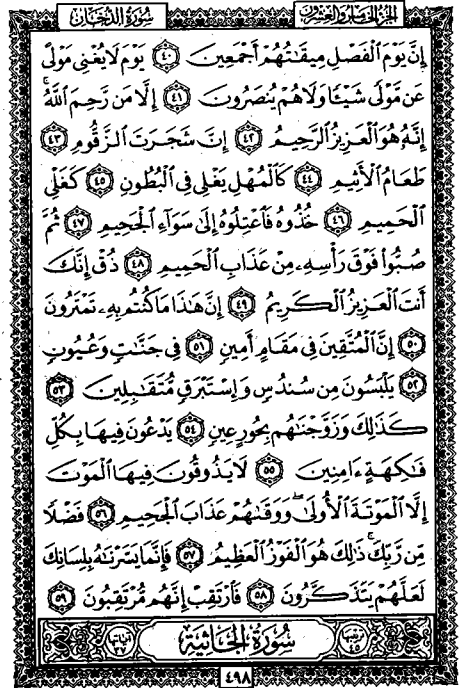 الجزء الخامس والعشرون سورة الدخان
إِنَّ يَوْمَ الْفَصْلِ مِيقَاتُهُمْ أَجْمَعِينَ ٤٠ يَوْمَ لَا يُغْنِي مَوْلًى
عَن مَّوْلًى شَيْئًا وَلَا هُمْ يُنصَرُونَ ٤١ إِلَّا مَن رَّحِمَ اللَّهُ ۚ
إِنَّهُ هُوَ الْعَزِيزُ الرَّحِيمُ ٤٢ إِنَّ شَجَرَتَ الزَّقُّومِ ٤٣
طَعَامُ الْأَثِيمِ ٤٤ كَالْمُهْلِ يَغْلِي فِي الْبُطُونِ ٤٥ كَغَلْيِ
الْحَمِيمِ ٤٦ خُذُوهُ فَاعْتِلُوهُ إِلَىٰ سَوَاءِ الْجَحِيمِ ٤٧ ثُمَّ
صُبُّوا فَوْقَ رَأْسِهِ مِنْ عَذَابِ الْحَمِيمِ ٤٨ ذُقْ إِنَّكَ
أَنتَ الْعَزِيزُ الْكَرِيمُ ٤٩ إِنَّ هَٰذَا مَا كُنتُم بِهِ تَمْتَرُونَ
٥٠ إِنَّ الْمُتَّقِينَ فِي مَقَامٍ أَمِينٍ ٥١ فِي جَنَّاتٍ وَعُيُونٍ
٥٢ يَلْبَسُونَ مِن سُندُسٍ وَإِسْتَبْرَقٍ مُّتَقَابِلِينَ ٥٣
كَذَٰلِكَ وَزَوَّجْنَاهُم بِحُورٍ عِينٍ ٥٤ يَدْعُونَ فِيهَا بِكُلِّ
فَاكِهَةٍ آمِنِينَ ٥٥ لَا يَذُوقُونَ فِيهَا الْمَوْتَ
إِلَّا الْمَوْتَةَ الْأُولَىٰ ۖ وَوَقَاهُمْ عَذَابَ الْجَحِيمِ ٥٦ فَضْلًا
مِّن رَّبِّكَ ۚ ذَٰلِكَ هُوَ الْفَوْزُ الْعَظِيمُ ٥٧ فَإِنَّمَا يَسَّرْنَاهُ بِلِسَانِكَ
لَعَلَّهُمْ يَتَذَكَّرُونَ ٥٨ فَارْتَقِبْ إِنَّهُم مُّرْتَقِبُونَ ٥٩
ترتيبها ٤٥ سُورَةُ الْجَاثِيَةِ آياتها ٣٧
٤٩٨